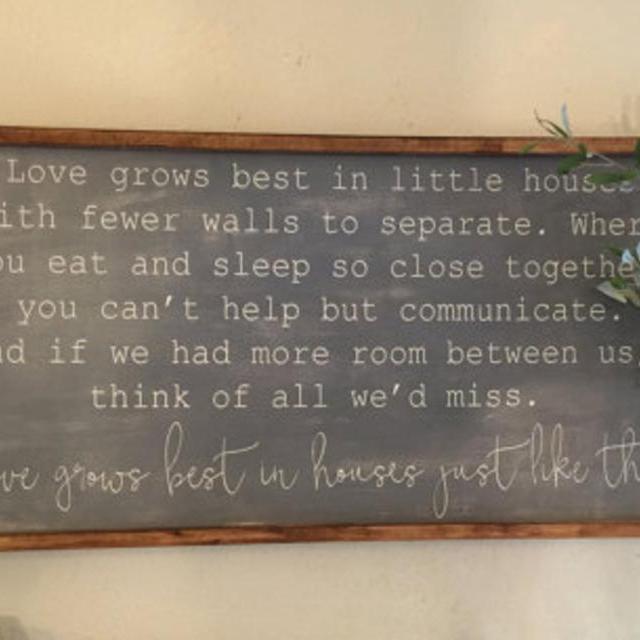 Love grows best in little houses
ith fewer walls to separate. Wher
ou eat and sleep so close togethe
you can't help but communicate.
nd if we had more room between us,
think of all we'd miss.
ve grows best in houses just like th